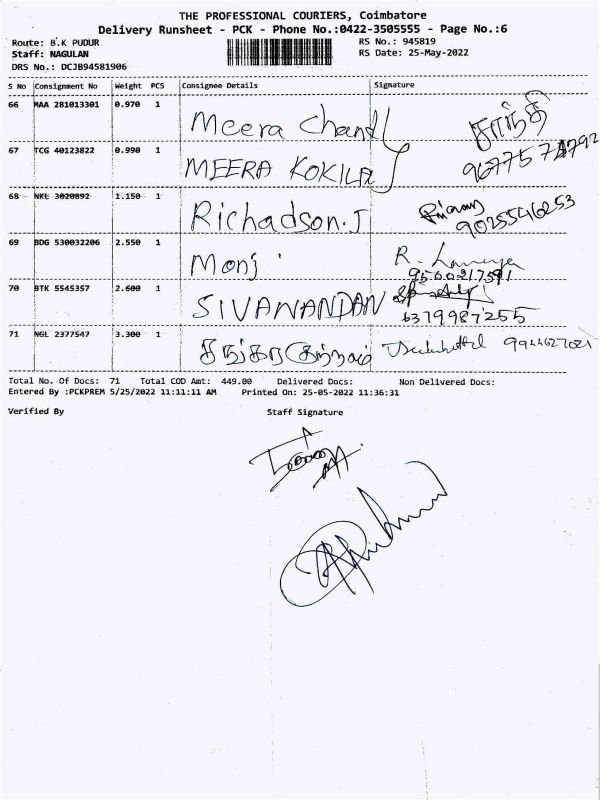 THE PROFESSIONAL COURIERS, Coimbatore
Delivery Runsheet - PCK - Phone No.:0422-3505555 - Page No.:6
Route: B.K PUDUR
RS No.: 945819
Staff: NAGULAN
RS Date: 25-May-2022
DRS No.: DCJB94581906
S No Consignment No Weight PCS Consignee Details Signature
66 MAA 281013301 0.970 1 Meera Chand சாந்தி
67 TCG 40123822 0.990 1 MEERA KOKILA 9677571792
68 NKL 3020892 1.150 1 Richadson.J 9025546253
69 BDG 530032206 2.550 1 Monj R. 9500217591
70 BTK 5545357 2.600 1 SIVANANDAN 6379987255
71 NGL 2377547 3.300 1 9944627021
Total No. Of Docs: 71 Total COD Amt: 449.00 Delivered Docs: Non Delivered Docs:
Entered By :PCKPREM 5/25/2022 11:11:11 AM Printed On: 25-05-2022 11:36:31
Verified By Staff Signature